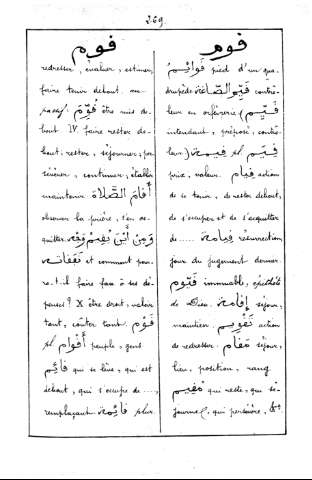 269.
قوم
redresser, évaluer, estimer,
faire tenir debout. au
passif. قُوِّمَ être mis de-
bout. IV faire rester de-
bout, rester, séjourner, per-
sévérer, continuer, établir
maintenir أَقَامَ الصَّلَاةَ
observer la prière, s'en ac-
quitter. وَمِنْ أَيْنَ يُقِيمُ بِقِيَمِ
نَفَقَاتِهِ et comment pour-
ra-t-il faire face à ses dé-
penses? X être droit, valoir
tant, coûter tant. قَوْم
pl أَقْوَام peuple, gens
قَائِم qui se lève, qui est
debout, qui s'occupe de ....,
remplaçant قَائِمَة plur
قوم
قَوَائِم pied d'un qua-
drupède قَيِّم الصَّاغَة contrô-
leur en orfèvrerie (قَيِّم
intendant, préposé, contrô-
leur) قِيمَة pl قِيَم
prix, valeur. قِيَام action
de se tenir, de rester debout,
de s'occuper et de s'acquitter
de..... قِيَامَة résurrection,
jour du jugement dernier.
قَيُّوم immuable, épithète
de Dieu. إِقَامَة séjour,
maintien. تَقْوِيم action
de redresser. مَقَام séjour,
lieu, position, rang
مُقِيم qui reste, qui sé-
journe, qui persévère, &.